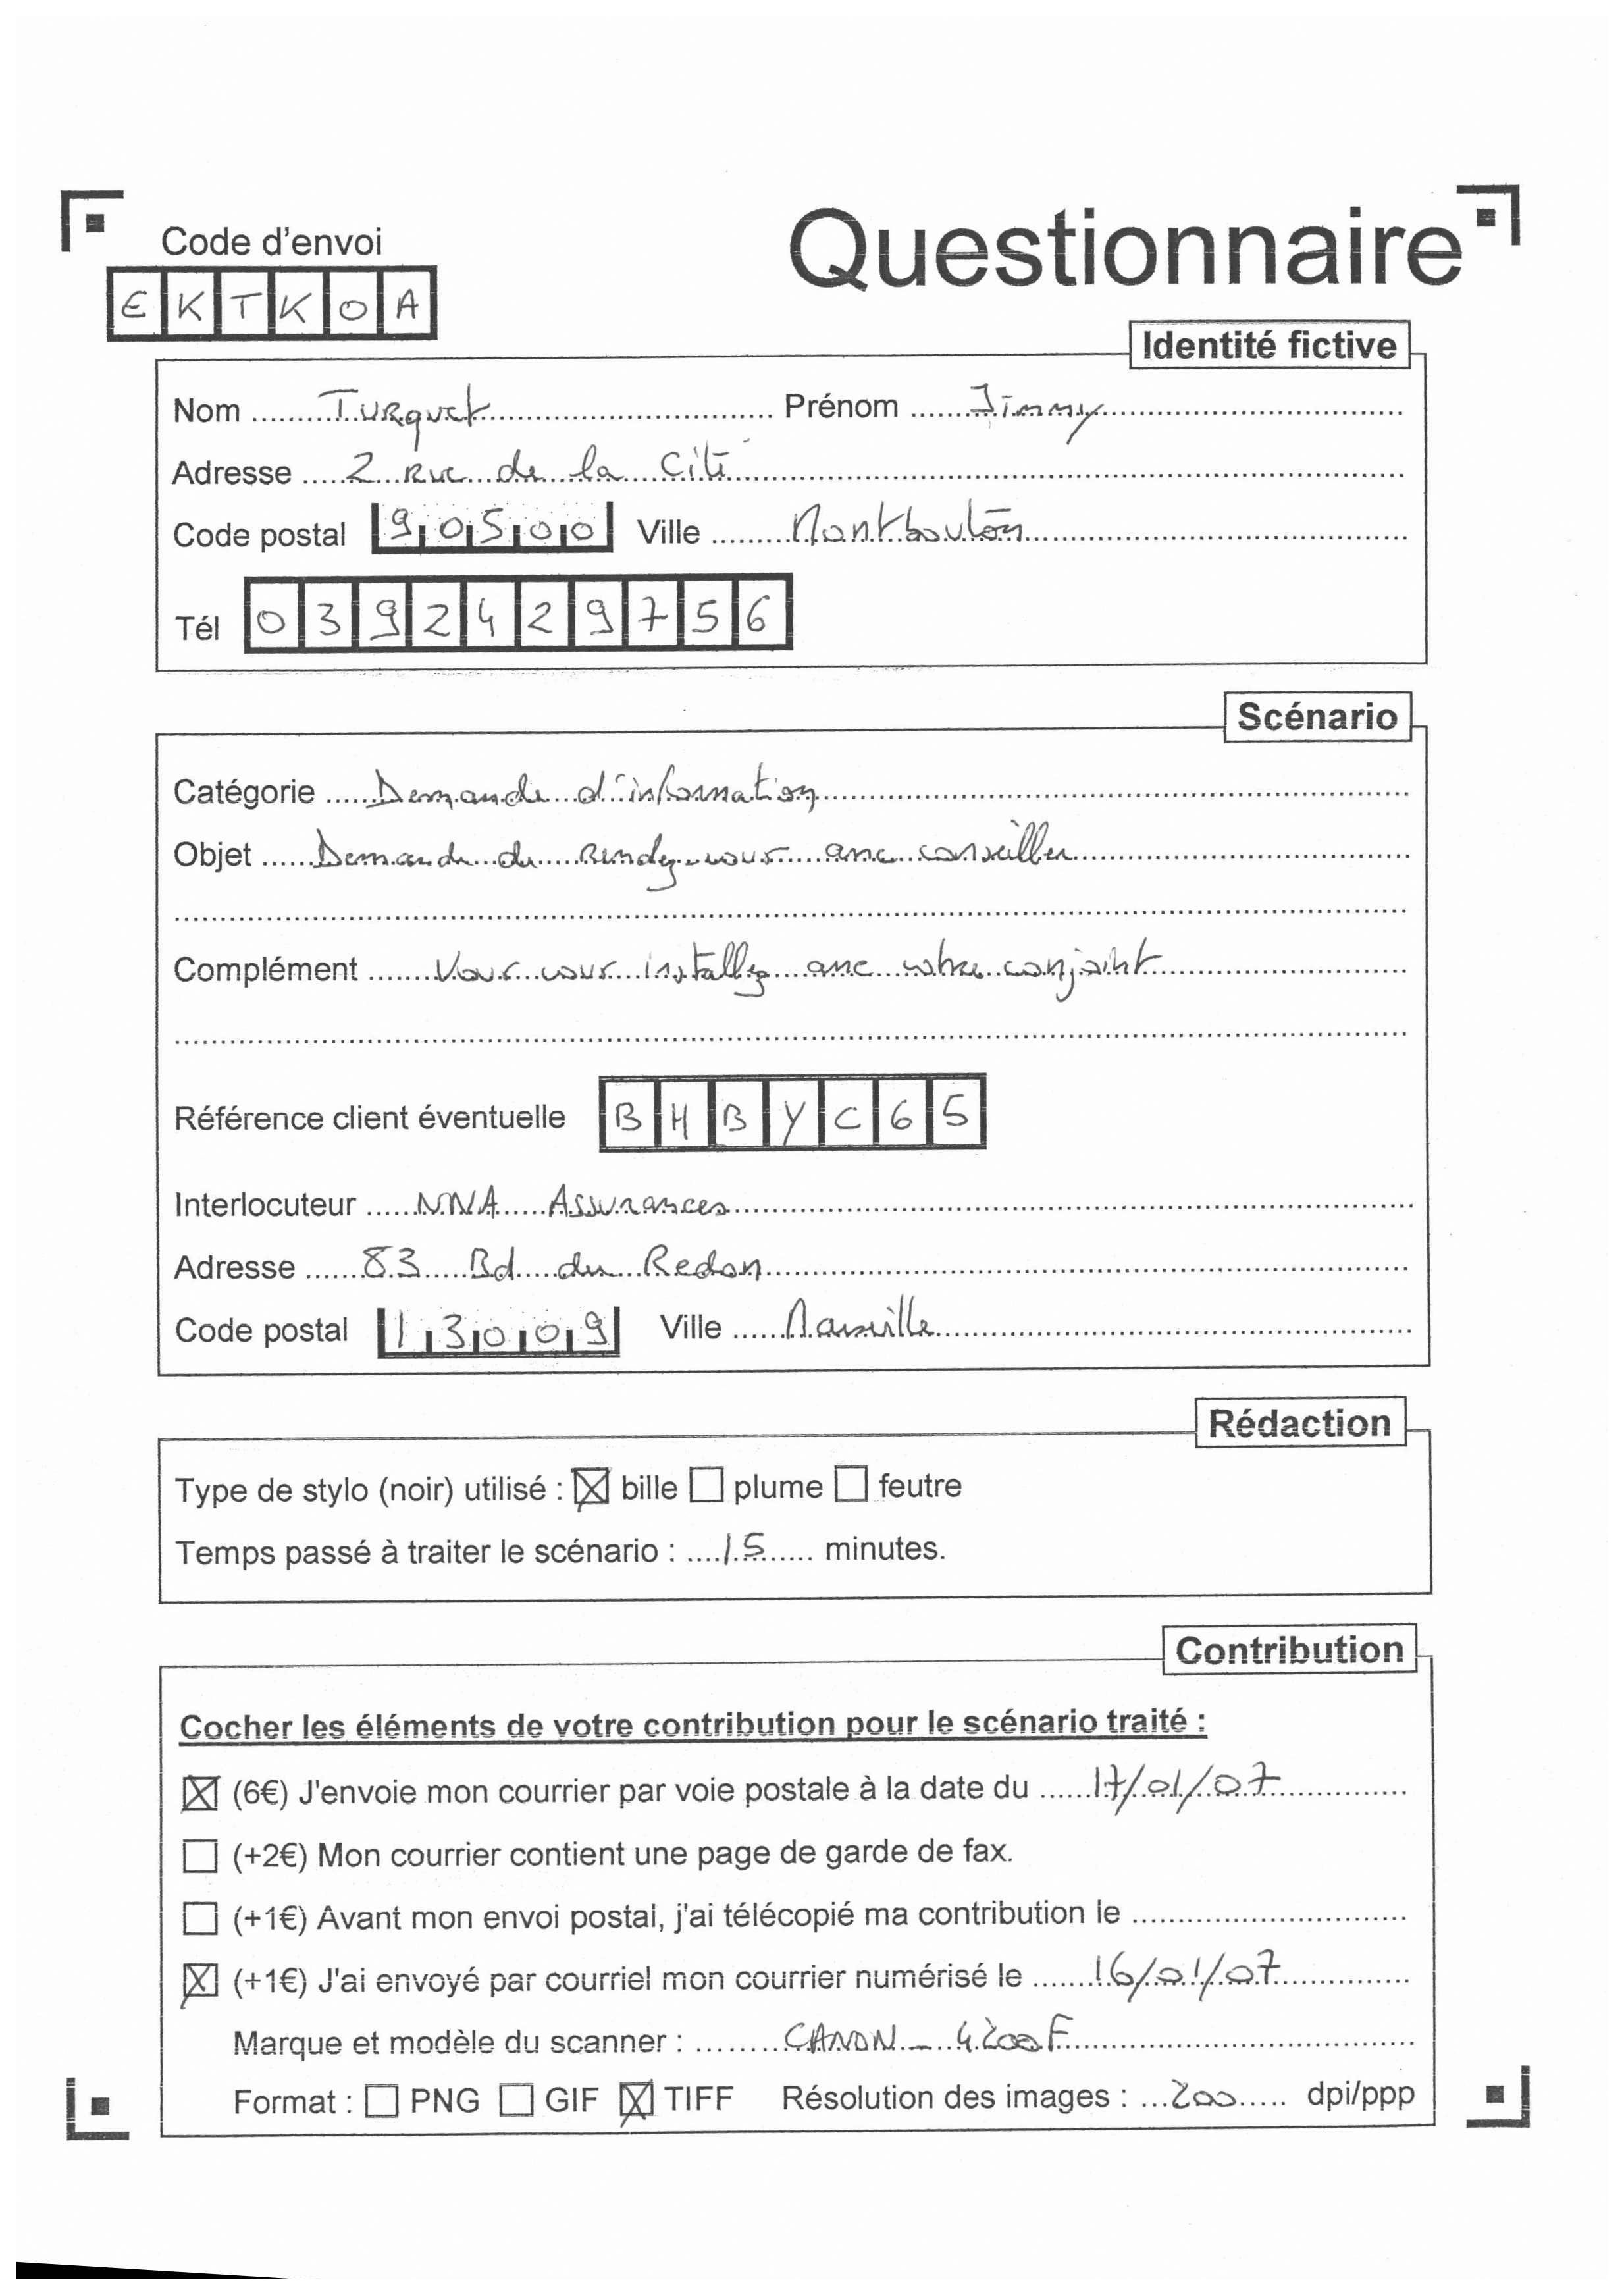 Questionnaire
Code d'envoi
EKTKOA
Identité fictive
Nom Turquet Prénom Jimmy
Adresse 2 Rue de la Cité
Code postal 90500 Ville Montbouton
Tél 0392429756
Scénario
Catégorie Demande d'information
Objet Demande de rendez-vous avec conseiller
Complément Vous vous installez avec votre conjoint
Référence client éventuelle BHBYC65
Interlocuteur NNA Assurances
Adresse 83 Bd du Redon
Code postal 13009 Ville Marseille
Rédaction
Type de stylo (noir) utilisé : ☒ bille ☐ plume ☐ feutre
Temps passé à traiter le scénario : 15 minutes.
Contribution
Cocher les éléments de votre contribution pour le scénario traité :
☒ (6€) J'envoie mon courrier par voie postale à la date du 17/01/07
☐ (+2€) Mon courrier contient une page de garde de fax.
☐ (+1€) Avant mon envoi postal, j'ai télécopié ma contribution le
☒ (+1€) J'ai envoyé par courriel mon courrier numérisé le 16/01/07
Marque et modèle du scanner : CANON - 4200F
Format : ☐ PNG ☐ GIF ☒ TIFF Résolution des images : 200 dpi/ppp